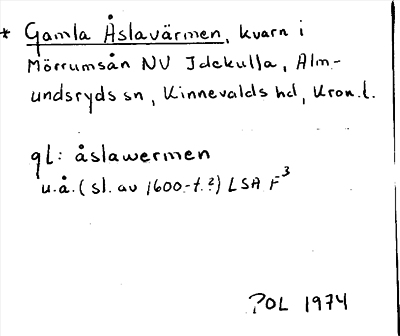 * Gamla Åslavärmen, kvarn i
Mörrumsån NV Idekulla, Alm-
undsryds sn, Kinnevalds hd, Kron.l.
gl: åslawermen
u.å. (sl. av 1600-t.?) LSA F³
POL 1974